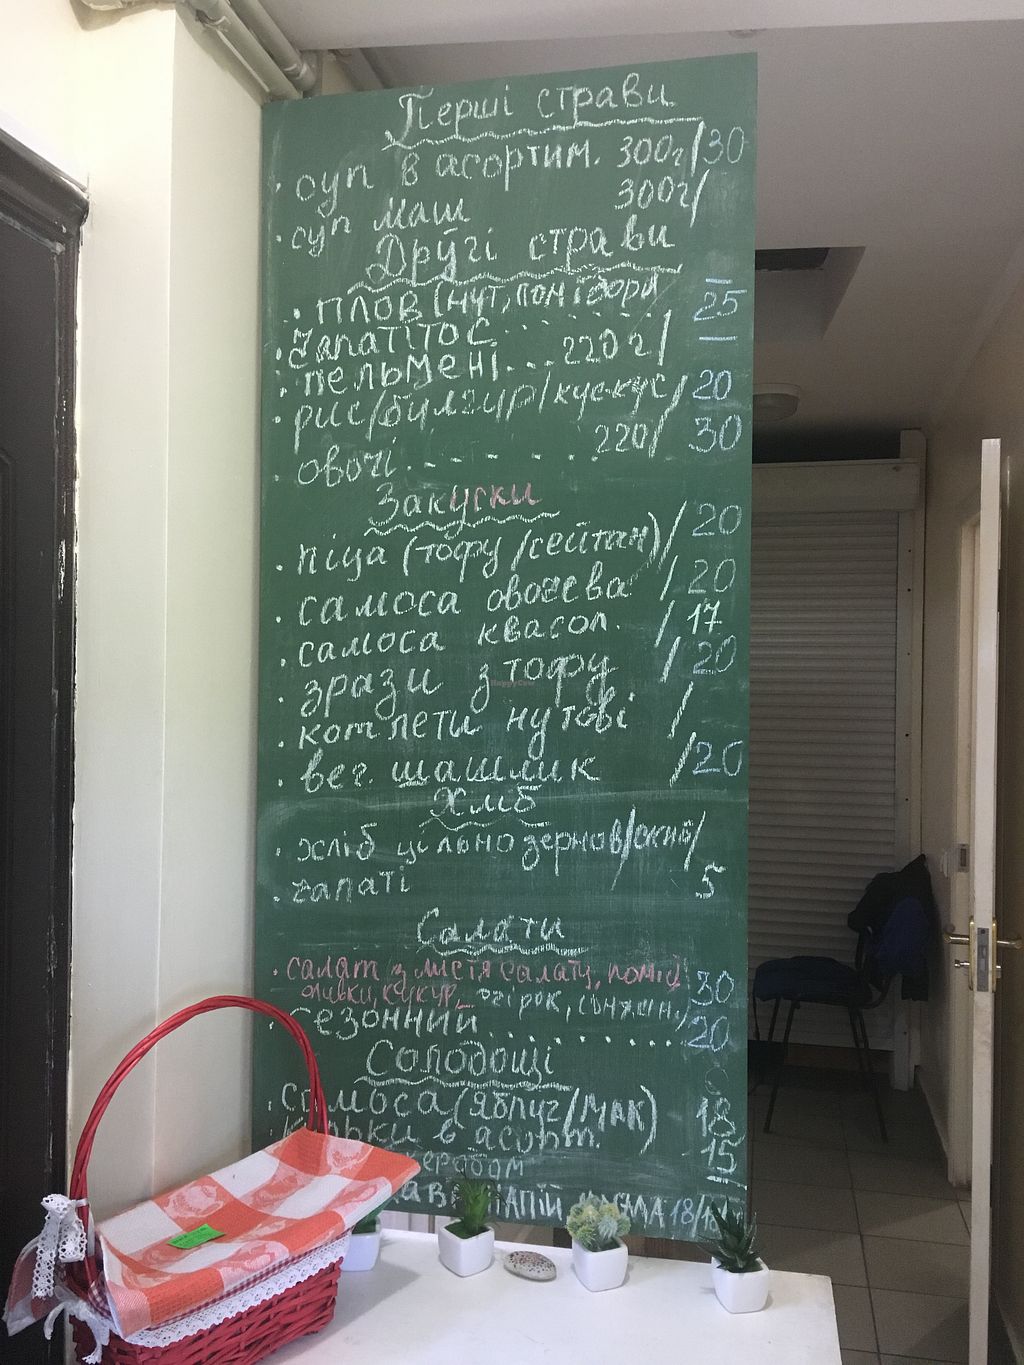 Перші страви
· суп в асортим. 300г/30
· суп маш 300г/
Другі страви
· плов (нут, помідори 25
· чапатітос........
· пельмені...220г/
· рис/булгур/кус-кус/ 20
· овочі........220/ 30
Закуски
· піца (тофу/сейтан)/ 20
· самоса овочева / 20
· самоса квасол. / 17
· зрази з тофу / 20
· котлети нутові /
· вег. шашлик /20
Хліб
· хліб цільнозернов/
· чапаті 5
Салати
· салат з листя салату, помід
кукур, огірок, 30
· сезонний........20
Солодощі
· самоса (яблуч/мак) 18
в асорт. 15
керобом
18/